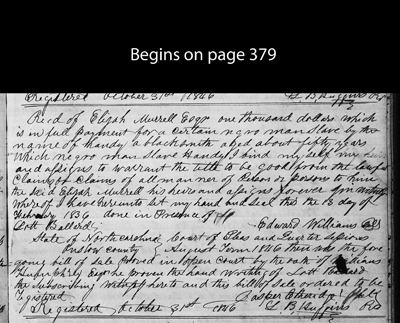 Begins on page 379
Registered October 31st 1846
Recd of Elijah Murrell Esqr one thousand dollars which
is in full payment for a certain negro man slave by the
name of handy a blacksmith aged about fifty years
which negro man slave Handy I bind my self my
and assigns to warrant the title to be good from the lawful
Claim or Claims of all manner of person or persons
the said Elijah Murrell his heirs and assigns forever in witness
Whereof I have hereunto set my hand and seal this the 13 day of
1836 done in presence of
Lott Ballard Edward Williams
State of North Carolina Court of Pleas and Quarter Sessions
County August Term 1846 then was the fore
going bill of sale proved in open Court by the oath of
Humphrey Esqr he proven the hand writing of Lott Ballard
the subscribing witness hereto and this bill of sale ordered to be
registered
Registered October 31st 1846